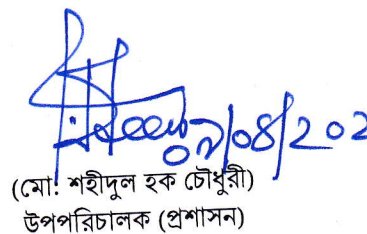 ০৯/০৪/২০২
(মো: শহীদুল হক চৌধুরী)
উপপরিচালক (প্রশাসন)